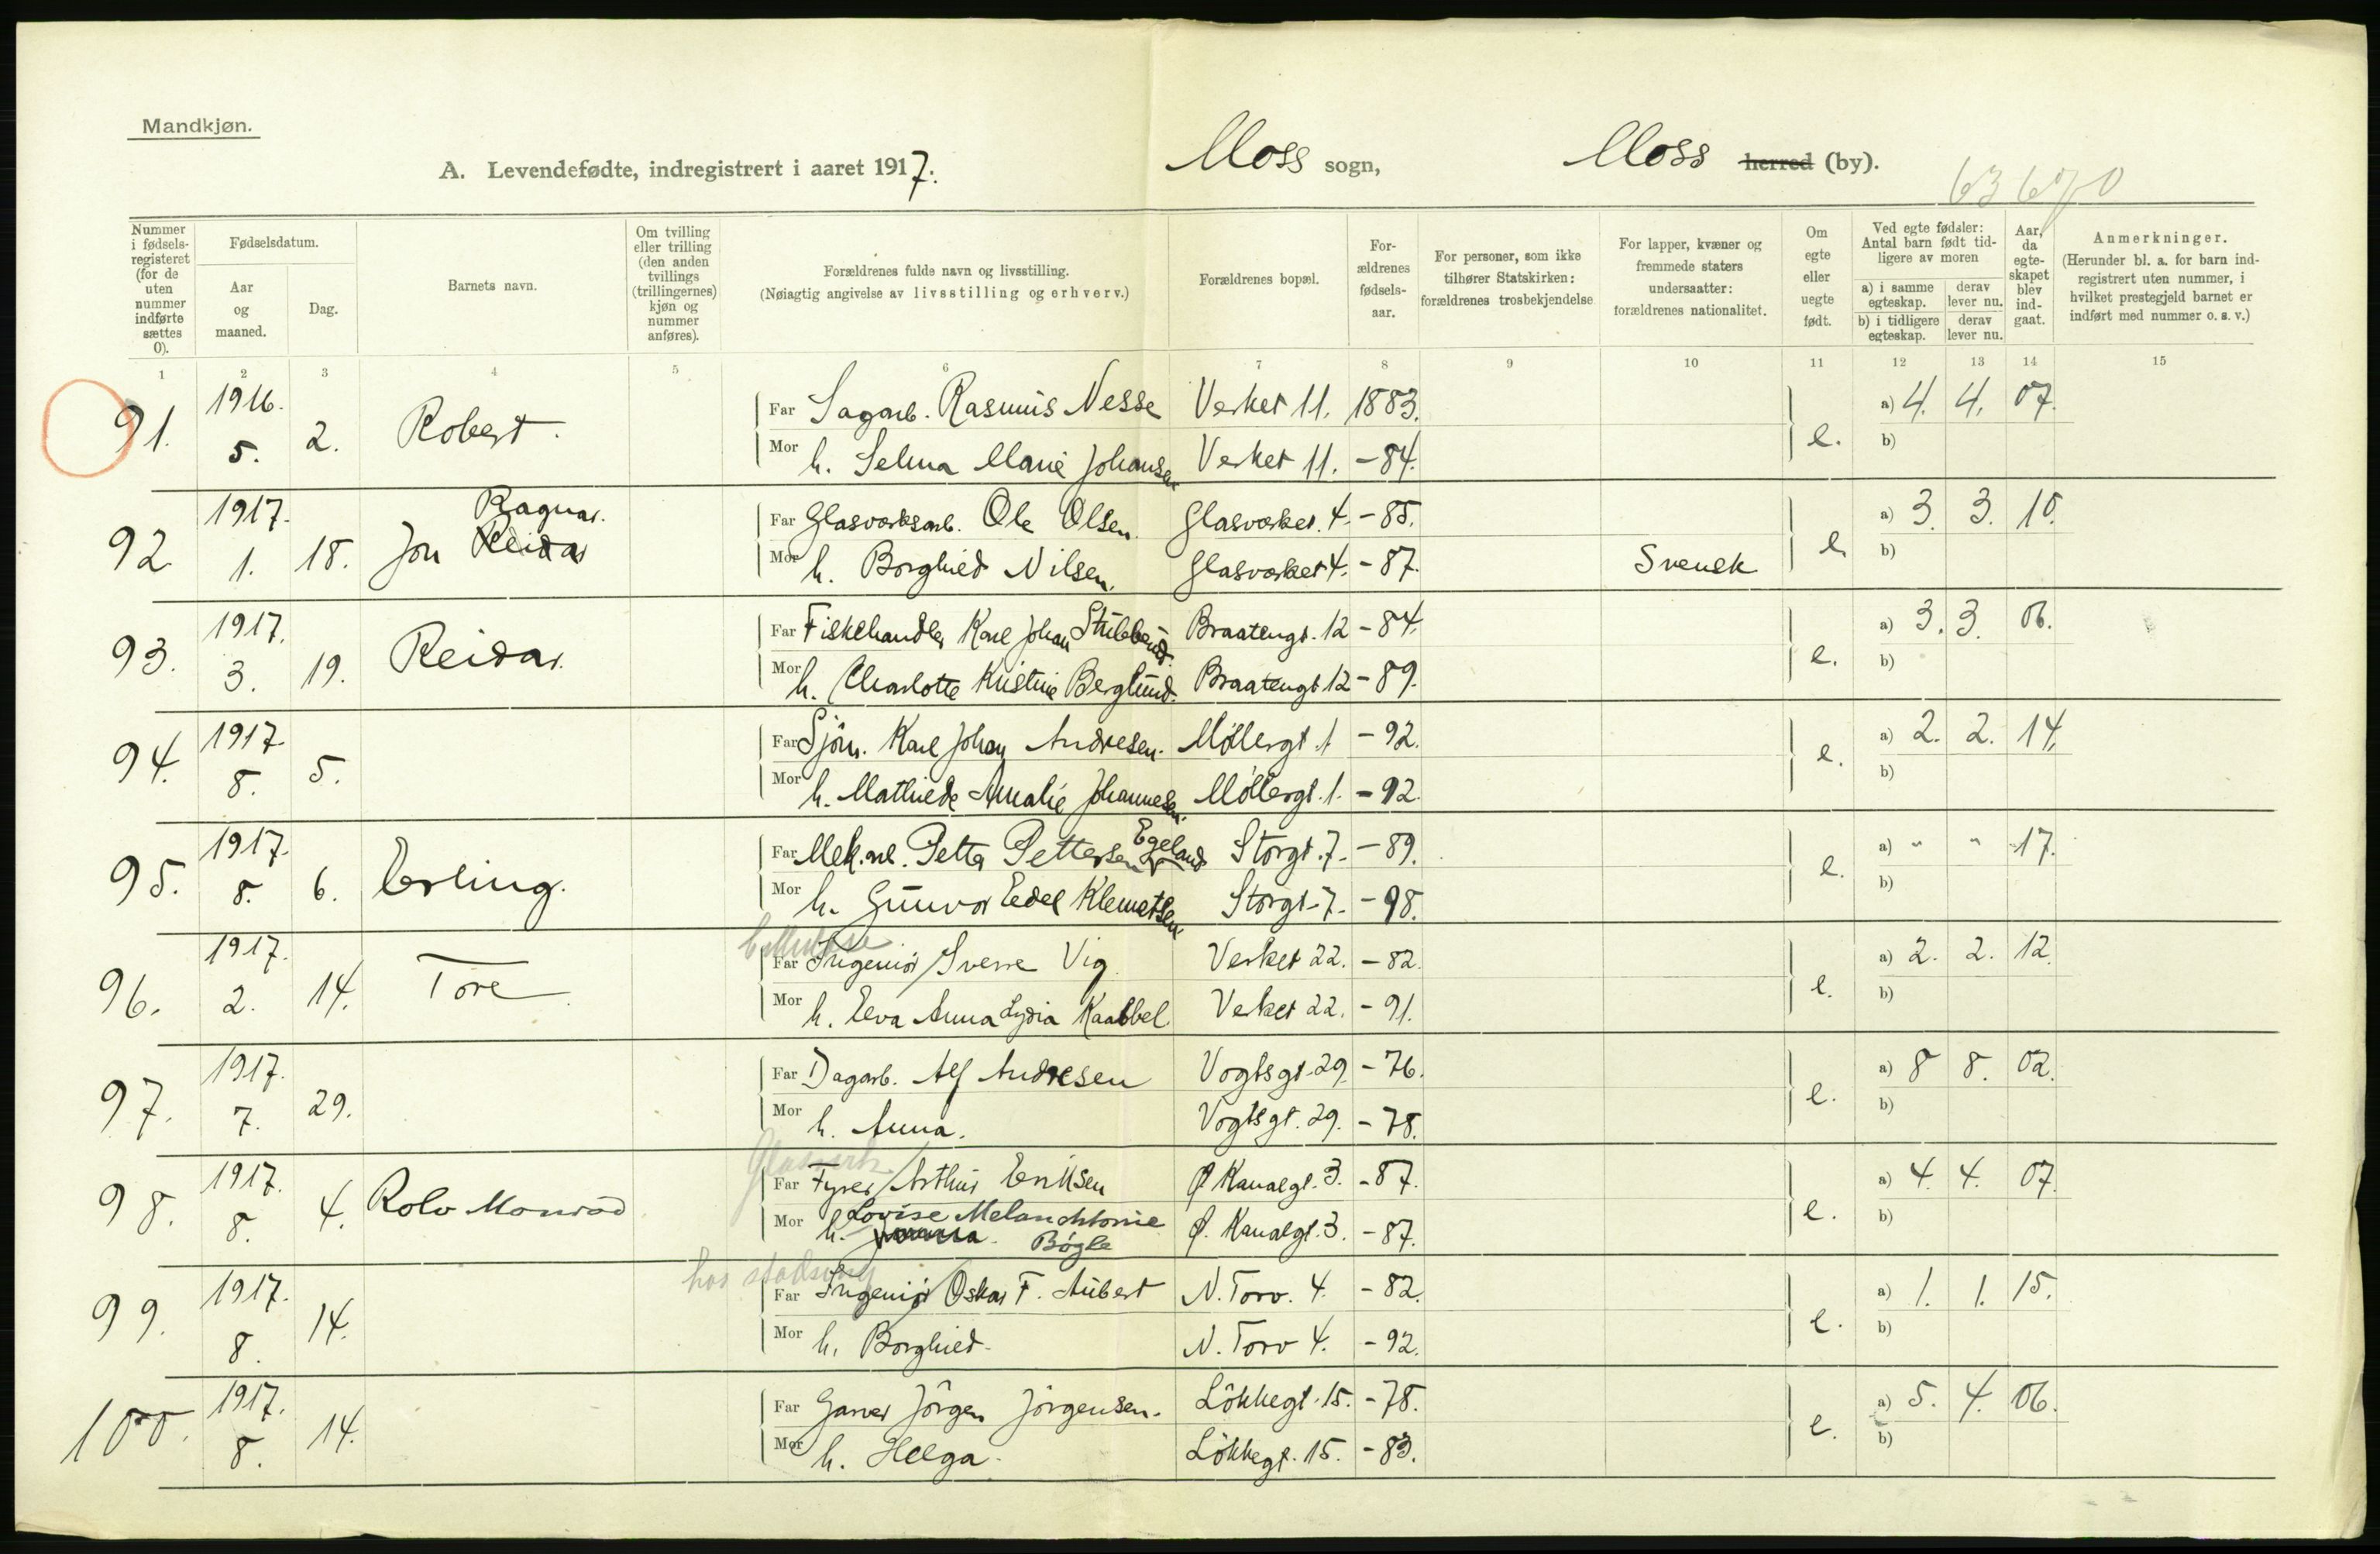 Mandkjøn.
A. Levendefødte, indregistrert i aaret 1917. Moss sogn, Moss herred (by).
63670
Nummer i fødsels-registeret (for de uten nummer indførte sættes 0).
Fødselsdatum.
Aar og maaned.
Dag.
Barnets navn.
Om tvilling eller trilling (den anden tvillings (trillingernes) kjøn og nummer anføres).
Forældrenes fulde navn og livsstilling.
(Nøiagtig angivelse av livsstilling og erhverv.)
Forældrenes bopæl.
For-ældrenes fødsels-aar.
For personer, som ikke tilhører Statskirken: forældrenes trosbekjendelse
For lapper, kvæner og fremmede staters undersaatter: forældrenes nationalitet.
Om egte eller uegte født.
Ved egte fødsler: Antal barn født tid-ligere av moren
a) i samme egteskap.
derav lever nu.
b) i tidligere egteskap.
derav lever nu.
Aar, da egte-skapet blev ind-gaat.
Anmerkninger.
(Herunder bl. a. for barn ind-registrert uten nummer, i hvilket prestegjeld barnet er indført med nummer o. s. v.)
1 2 3 4 5 6 7 8 9 10 11 12 13 14 15
91. 1916. 5. 2. Robert. Far Sagarb. Rasmus Nesse Verket 11. 1883. e. a) 4. 4. 07.
Mor h. Selma Marie Johansen Verket 11. -84. b)
92. 1917. 1. 18. Jon Reidar Ragnar. Far Glasværksarb. Ole Olsen. Glasværket. 4. -85. e. a) 3. 3. 10.
Mor h. Borghild Nilsen. Glasværket 4. -87. Svensk b)
93. 1917. 3. 19. Reidar. Far Fiskehandler Karl Johan Stubberud. Braatengt. 12 -84. e. a) 3. 3. 06.
Mor h. Charlotte Kristine Berglund. Braatengt 12 -89. b)
94. 1917. 8. 5. Far Sjøm. Karl Johan Andresen. Møllergt. 1 -92. e. a) 2. 2. 14.
Mor h. Mathilde Amalie Johannesen. Møllergt. 1. -92. b)
95. 1917. 8. 6. Erling. Far Mek. arb. Petter Pettersen Egeland Storgt. 7. -89. e. a) " " 17.
Mor h. Gunvor Edel Klemetsen Storgt. 7. -98. b)
Cellulose
96. 1917. 2. 14. Tore Far Ingeniør Sverre Vig. Verket 22. -82. e. a) 2. 2. 12.
Mor h. Eva Anna Lydia Kaabbel. Verket 22. -91. b)
97. 1917. 7. 29. Far Dagarb. Alf Andresen Vogtsgt. 29. -76. e. a) 8 8. 02.
Mor h. Anna. Vogtsgt. 29. -78. b)
Glasverk.
98. 1917. 8. 4. Rolv Monrad Far Fyrer Arthur Eriksen Ø Kanalgt. 3. -87. e. a) 4. 4. 07.
Mor h. Lovise Melanchtonie Bøgle Ø. Kanalgt. 3. -87. b)
hos stadsing
99. 1917. 8. 14. Far Ingeniør Oskar F. Aubert N. Torv. 4. -82. e. a) 1. 1. 15.
Mor h. Borghild. N. Torv 4. -92. b)
100. 1917. 8. 14. Far Garver Jørgen Jørgensen. Løkkegt. 15. -78. e. a) 5. 4. 06.
Mor h. Helga. Løkkegt. 15. -83. b)